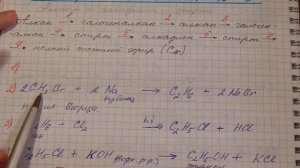 алкан 1→ галогеналкан 2→ алкан 3→ галоген-
алкан 4→ спирт 5→ алкадиен 6→ спирт
→ полный сложный эфир
1)
2) 2CH₃Br + 2Na → C₂H₆ + 2NaBr
избыток
Вюрца
3) C₂H₆ + Cl₂ hν→ C₂H₅Cl + HCl
C₂H₅Cl + KOH → C₂H₅OH + KCl